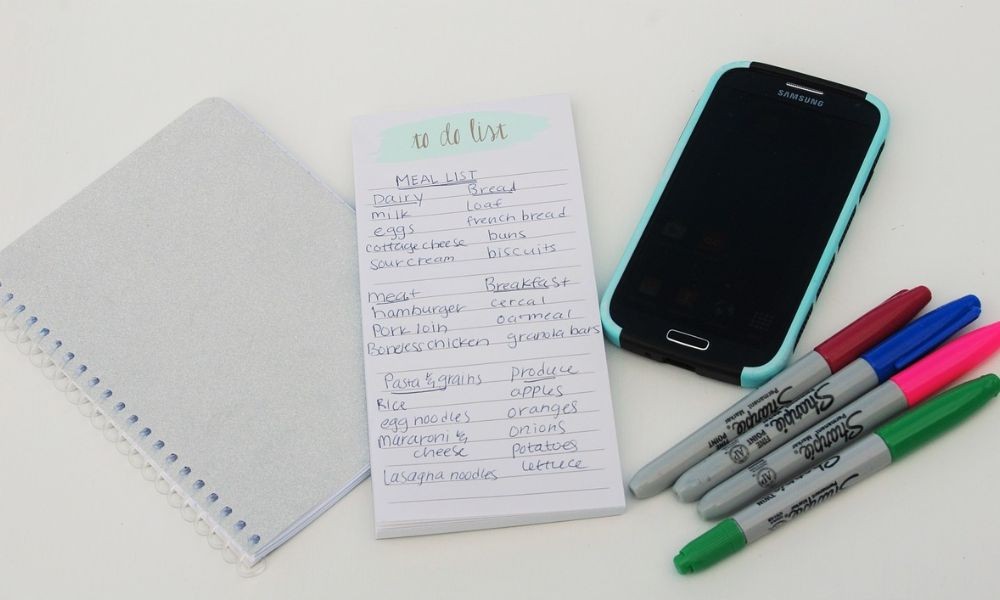 to do list
MEAL LIST
Dairy
milk
eggs
cottage cheese
sour cream
Bread
loaf
french bread
buns
biscuits
meat
hamburger
Pork loin
Boneless chicken
Breakfast
cereal
oatmeal
granola bars
Pasta & grains
Rice
egg noodles
macaroni &
cheese
lasagna noodles
produce
apples
oranges
onions
potatoes
lettuce
SAMSUNG
Sharpie
Permanent Marker
FINE POINT
Sharpie
Permanent Marker
FINE POINT
AP
Sharpie
AP
Sharpie
TWIN